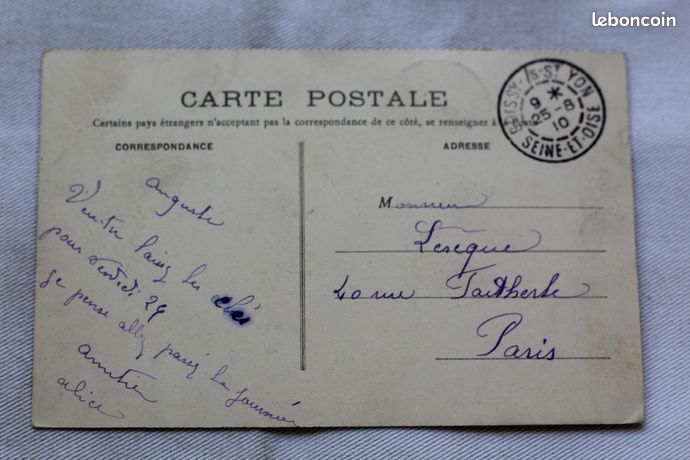 leboncoin
CARTE POSTALE
Certains pays étrangers n'acceptant pas la correspondance de ce côté, se renseigner à la Poste
CORRESPONDANCE
ADRESSE
BOISSY-S-ST YON
9 *
25-8
10
SEINE-ET-OISE
auguste
Veu-tu laissé les clés
pour Vendredi
je pense allez passé la journée
alice
Monsieur
rue
Paris